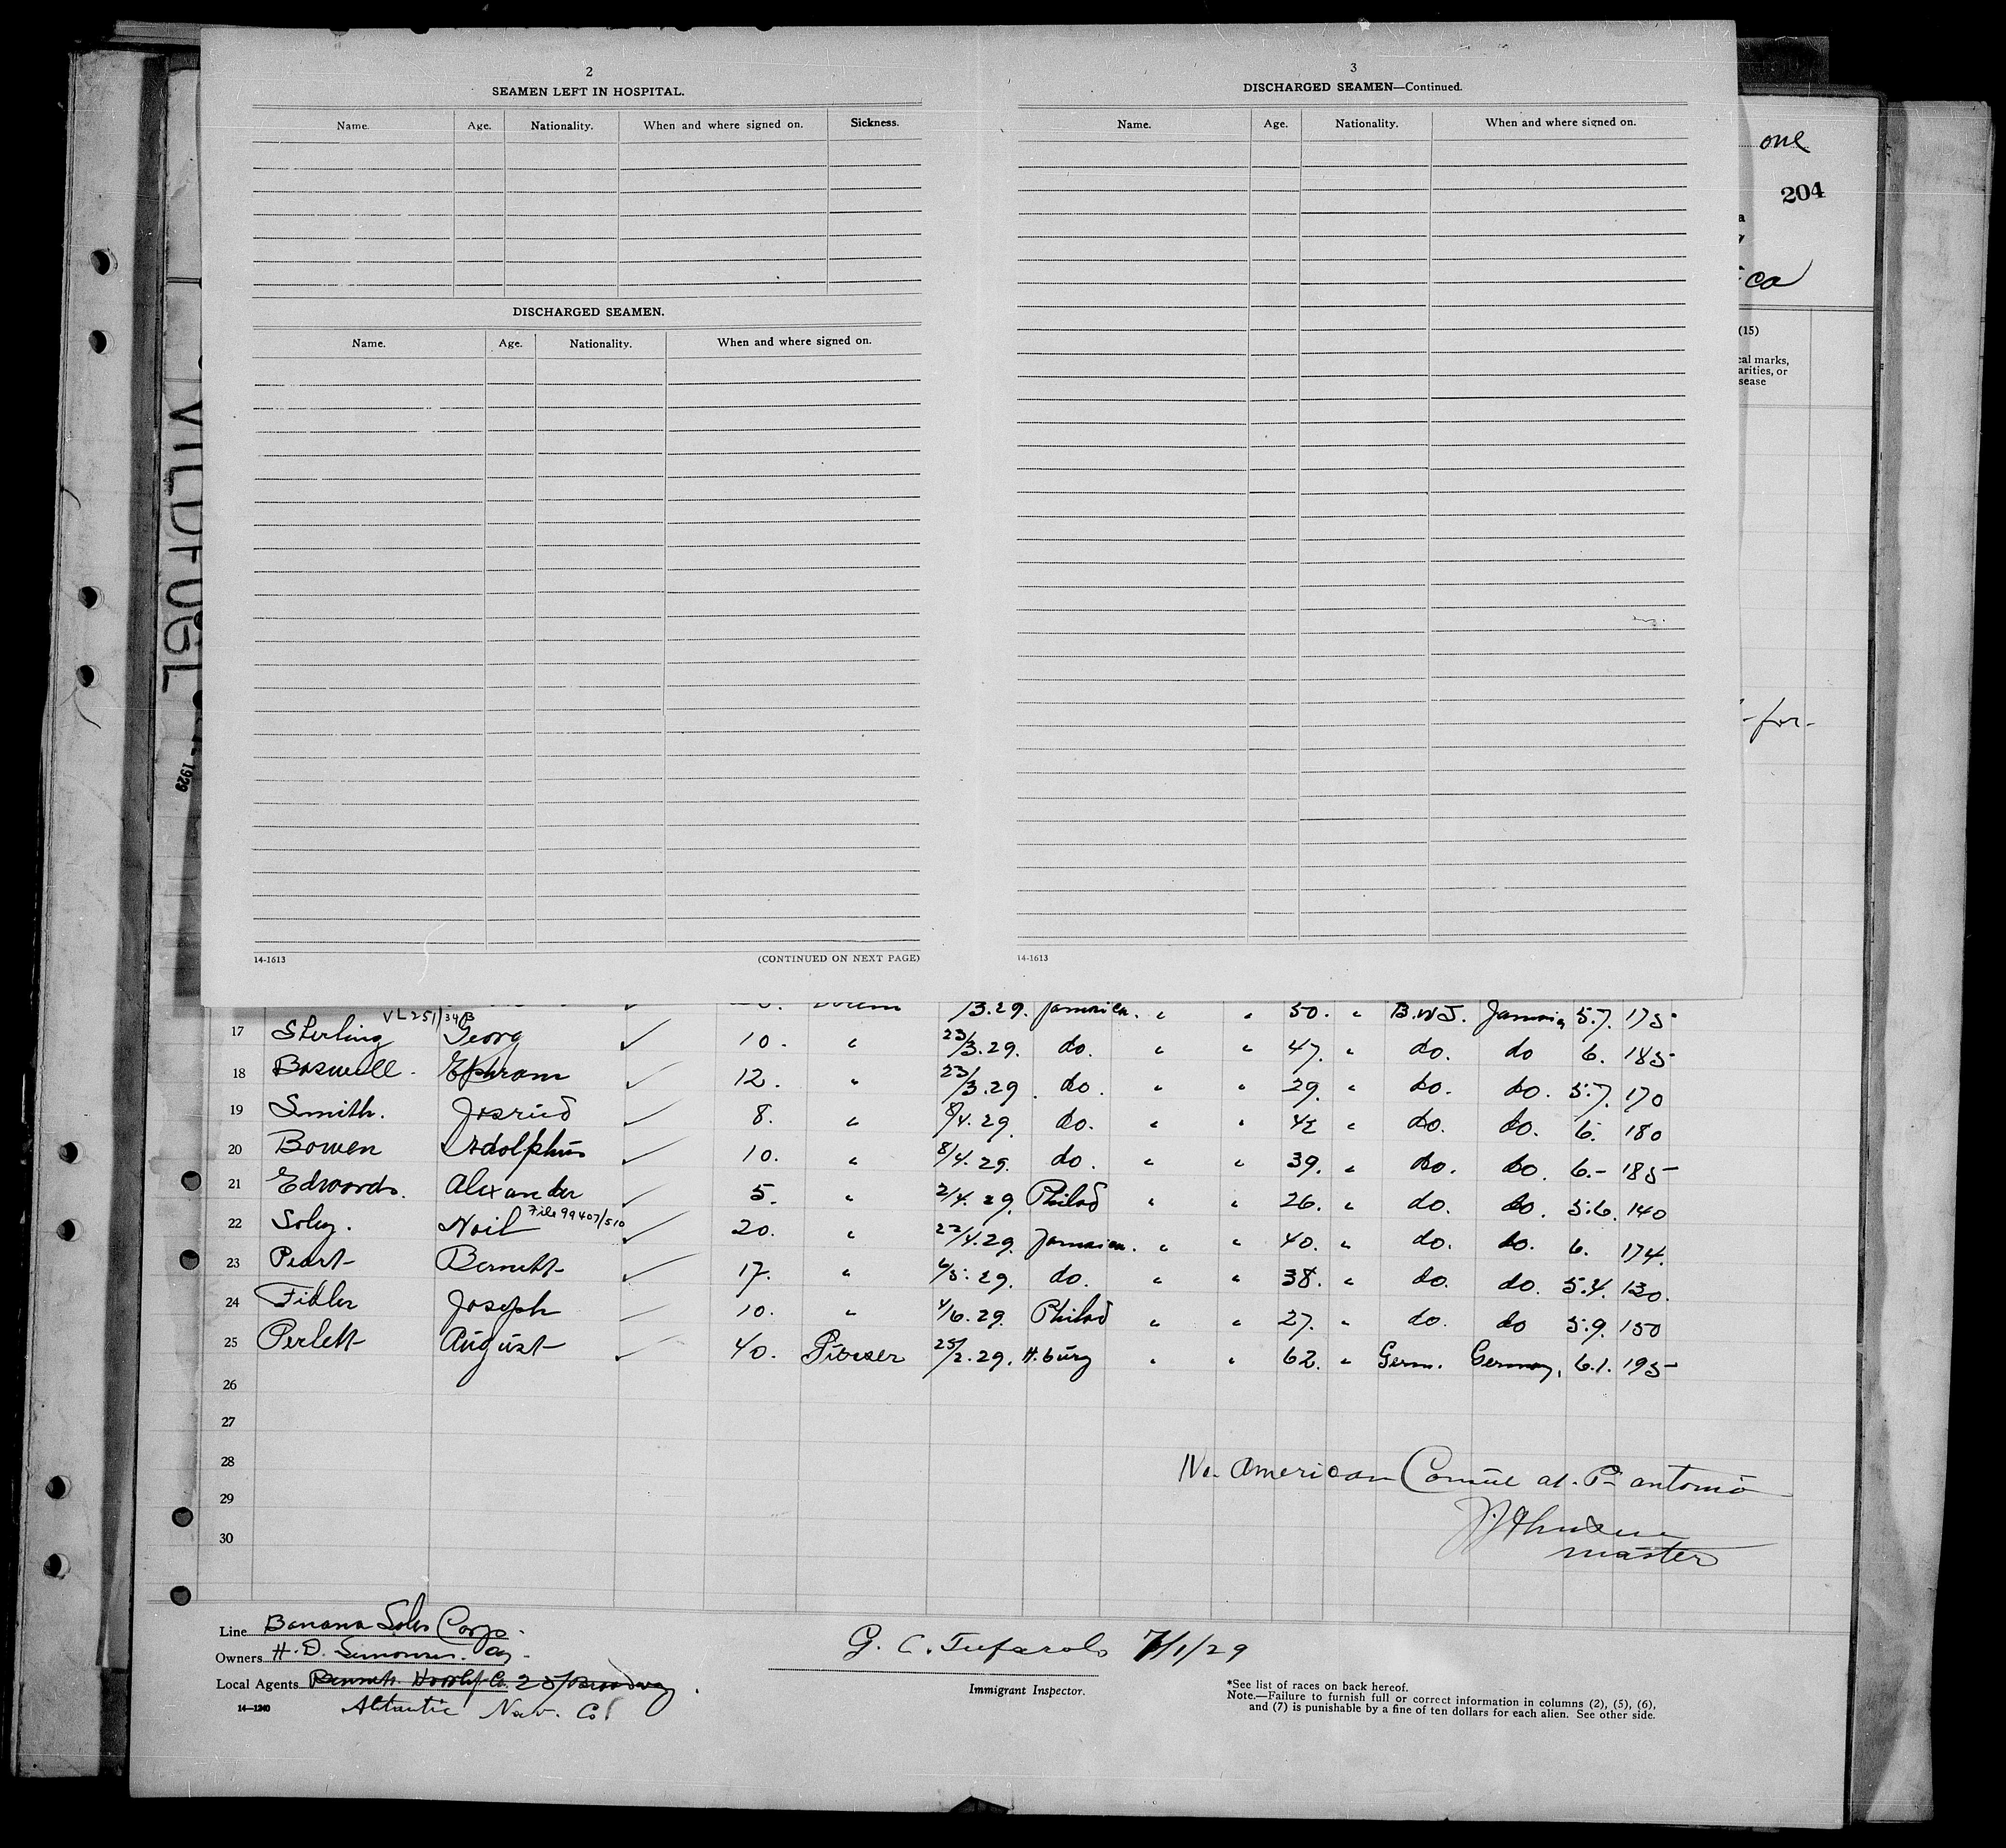 2
SEAMEN LEFT IN HOSPITAL.
Name. Age. Nationality. When and where signed on. Sickness.
DISCHARGED SEAMEN.
Name. Age. Nationality. When and where signed on.
14-1613 (CONTINUED ON NEXT PAGE)
3
DISCHARGED SEAMEN—Continued.
Name. Age. Nationality. When and where signed on.
14-1613
one
204
a
ca
(15)
cal marks,
arities, or
sease
-for-
VILDFUGL
1929
/3.29. Jamaica. " " 50. " B.W.I. Jamaica 5.7. 175
VL251/34B
17 Sterling Georg ✓ 10. " 23/3.29. do. " " 47. " do. do 6. 185
18 Boswell. Ephram ✓ 12. " 23/3.29. do. " " 29. " do. do. 5.7. 170
19 Smith. ✓ 8. " 8/4.29. do. " " 42 " do. do. 6. 180
20 Bowen Adolphus ✓ 10. " 8/4.29. do. " " 39. " do. do. 6.- 185
21 Edwards. Alexander ✓ 5. " 2/4.29. Philad " " 26. " do. do. 5.6. 140
File 99407/510
22 Noil ✓ 20. " 22/4.29. Jamaica. " " 40. " do. do. 6. 174.
23 Peart Bernett ✓ 17. " 6/5.29. do. " " 38. " do. do. 5.4. 130.
24 Fidler Joseph ✓ 10. " 4/6.29. Philad " " 27. " do. do 5.9. 150
25 Perlett August ✓ 40. 25/2.29. H.burg " " 62. " Germ. Germany, 6.1. 195
26
27
28
29
30
No American Consul at Pt antonio
master
Line Banana Sales Corp.
Owners H. D.
Local Agents 25 Broadway
Altantic Nav. Co
14—1240
G. C. Tufarolo 7/1/29
Immigrant Inspector.
*See list of races on back hereof.
Note.—Failure to furnish full or correct information in columns (2), (5), (6),
and (7) is punishable by a fine of ten dollars for each alien. See other side.